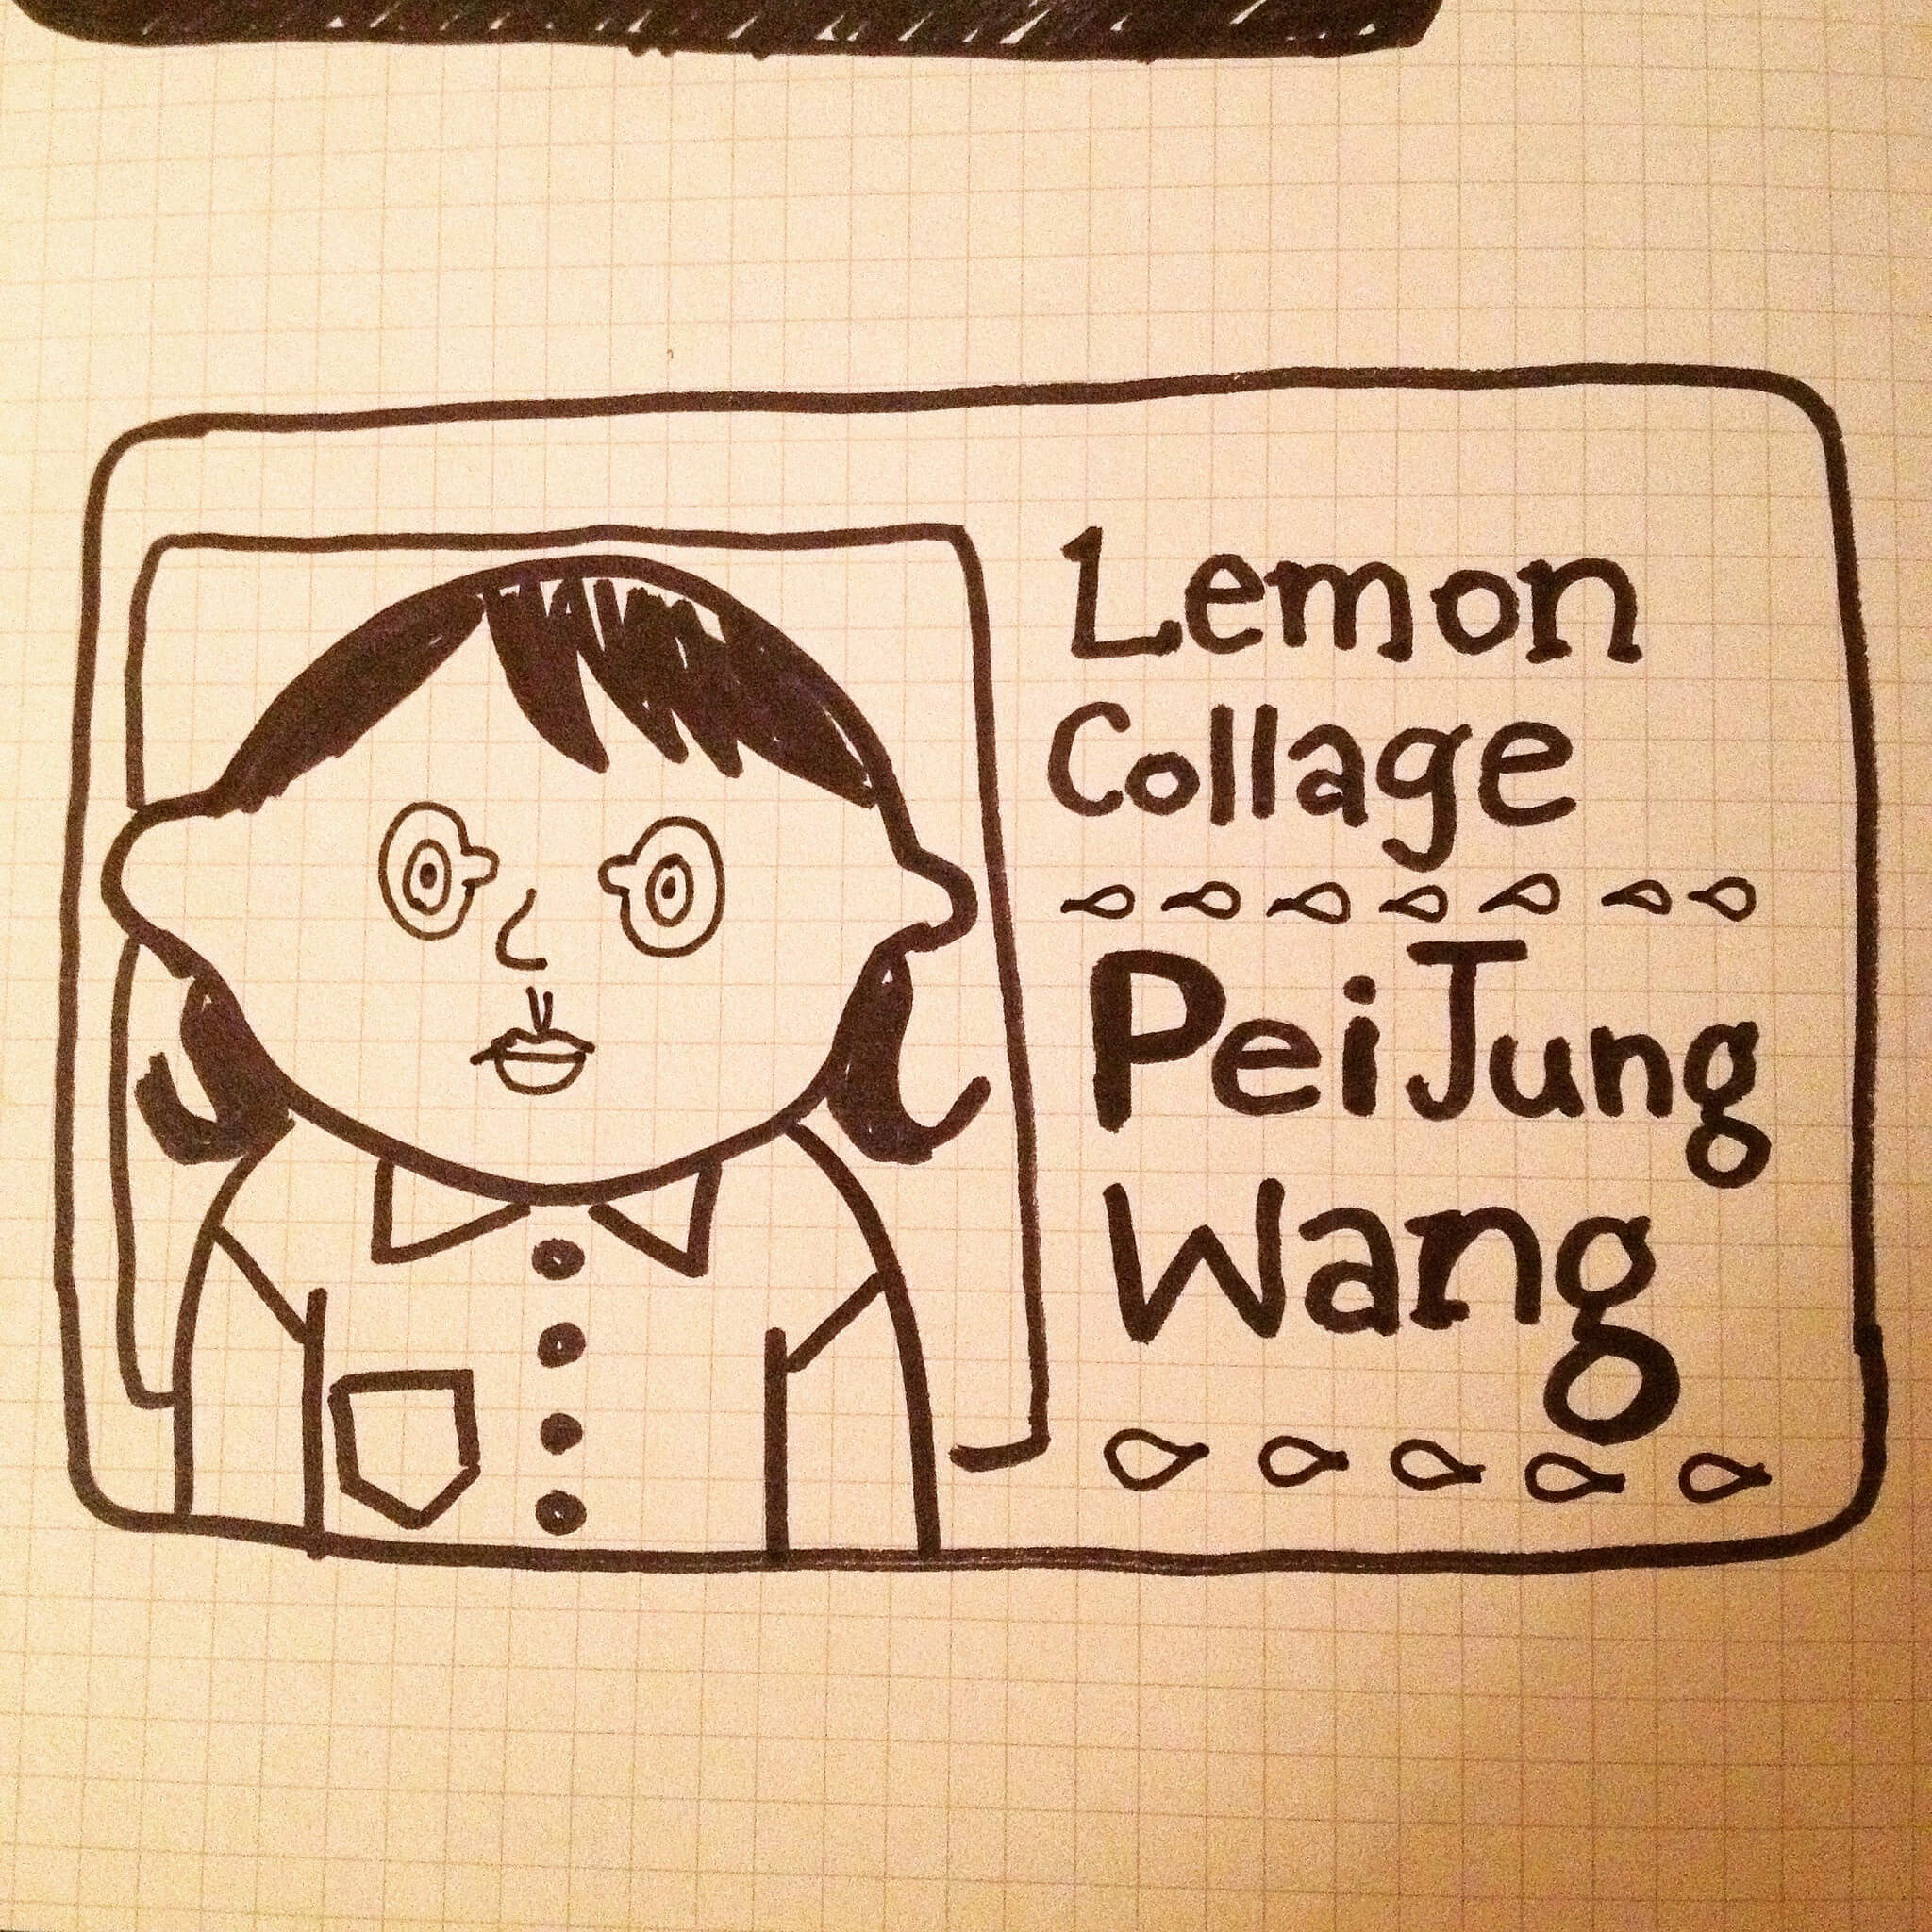 Lemon
Collage
PeiJung
Wang